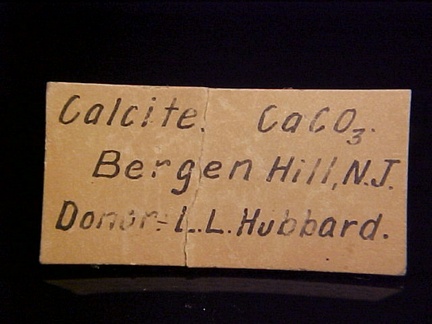 Calcite. CaCO₃.
Bergen Hill, N.J.
Donor:- L.L. Hubbard.